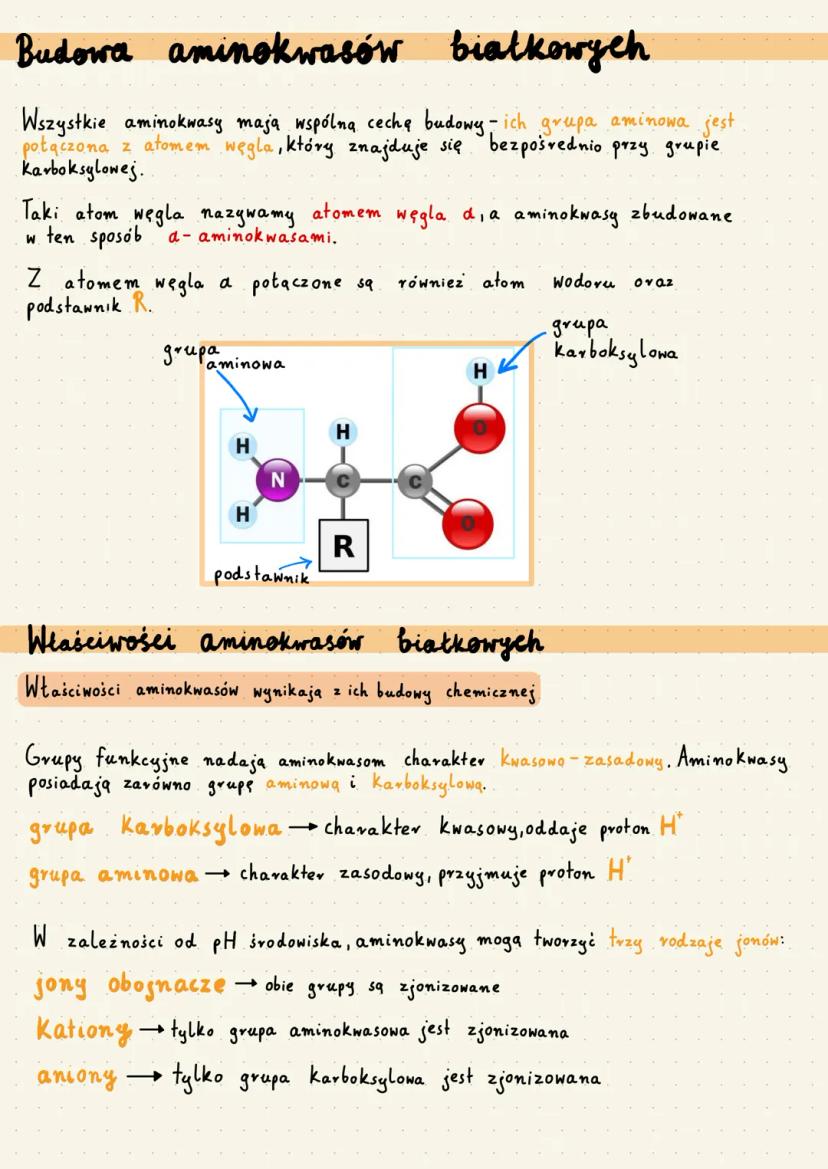 Budowa aminokwasów białkowych
Wszystkie aminokwasy mają wspólną cechę budowy - ich grupa aminowa jest
połączona z atomem węgla, który znajduje się bezpośrednio przy grupie
karboksylowej.
Taki atom węgla nazywamy atomem węgla α, a aminokwasy zbudowane
w ten sposób α- aminokwasami.
Z atomem węgla α połączone są również atom wodoru oraz
podstawnik R.
grupa
aminowa
grupa
karboksylowa
H
O
H
H
N
C
C
H
O
R
podstawnik
Właściwości aminokwasów białkowych
Właściwości aminokwasów wynikają z ich budowy chemicznej
Grupy funkcyjne nadają aminokwasom charakter kwasowo-zasadowy. Aminokwasy
posiadają zarówno grupę aminową i karboksylową.
grupa karboksylowa → charakter kwasowy, oddaje proton H⁺
grupa aminowa → charakter zasodowy, przyjmuje proton H⁺
W zależności od pH środowiska, aminokwasy mogą tworzyć trzy rodzaje jonów:
jony obojnacze → obie grupy są zjonizowane
Kationy → tylko grupa aminokwasowa jest zjonizowana
aniony → tylko grupa karboksylowa jest zjonizowana